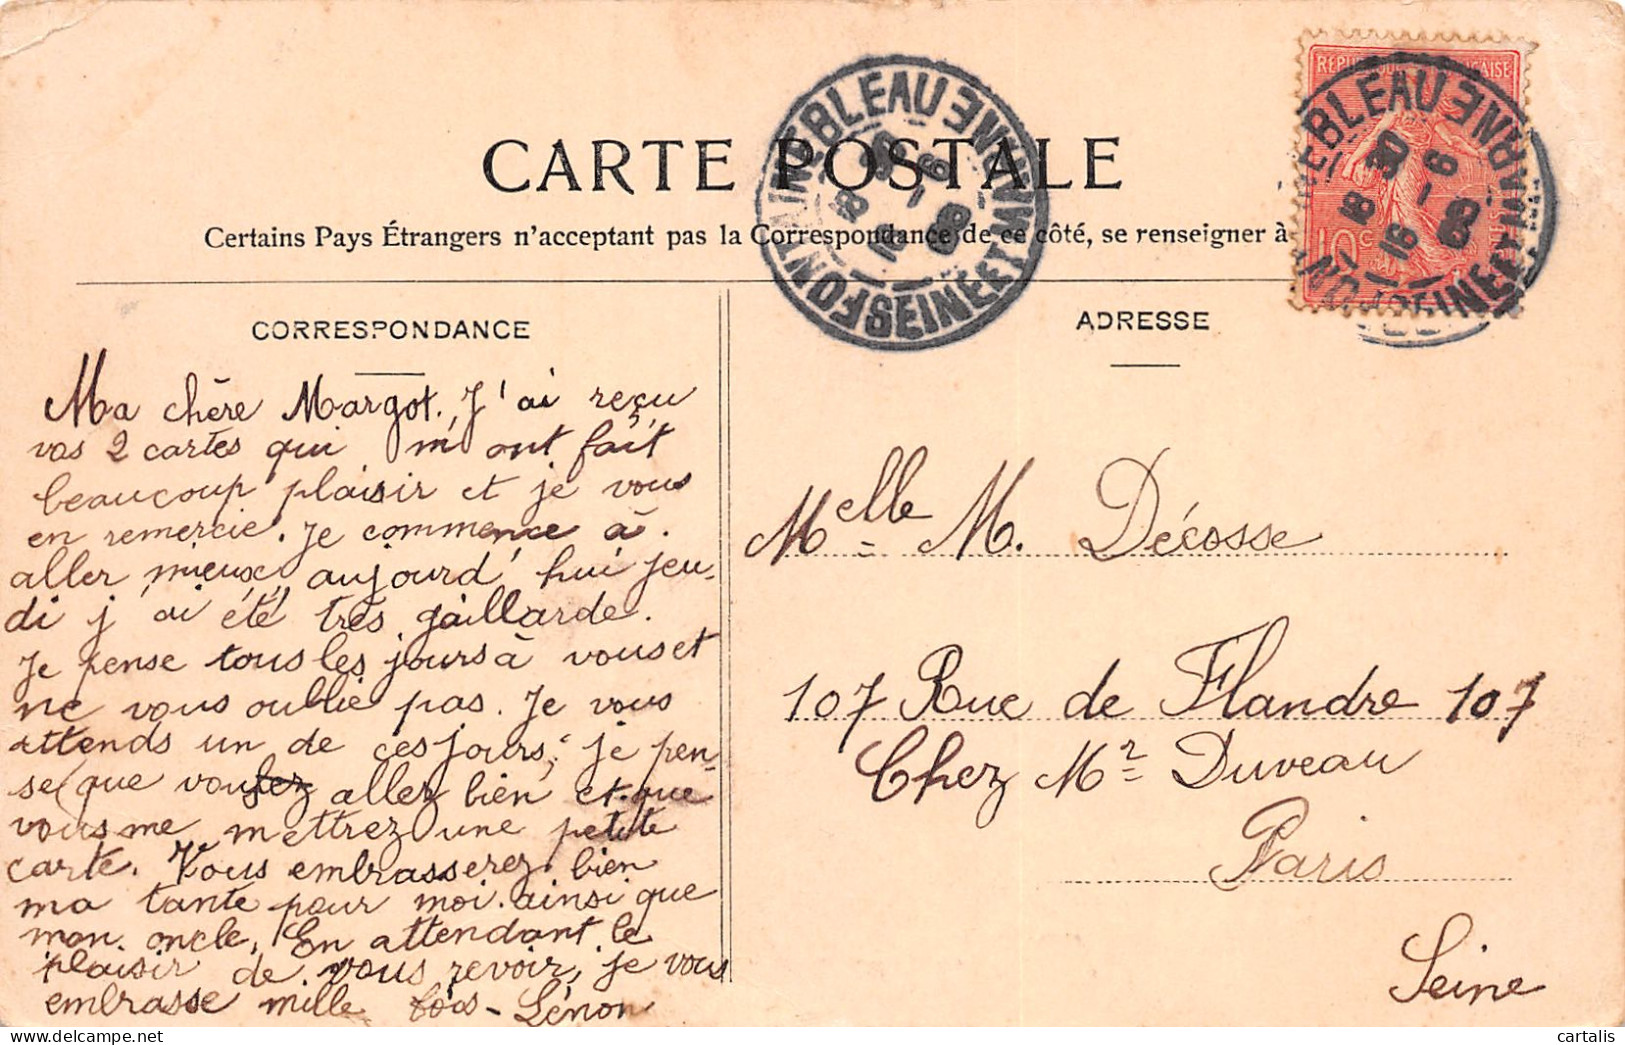 CARTE POSTALE
Certains Pays Étrangers n'acceptant pas la Correspondance de ce côté, se renseigner à
CORRESPONDANCE
Ma chère Margot. J'ai reçu
vos 2 cartes qui m'ont fait
beaucoup plaisir et je vous
en remercie. Je commence à
aller mieux, aujourd'hui jeu-
di j'ai été très gaillarde.
Je pense tous les jours à vous et
ne vous oublie pas. Je vous
attends un de ces jours, je pen-
se que vous allez bien et que
vous me mettrez une petite
carte. Vous embrasserez bien
ma tante pour moi ainsi que
mon oncle, En attendant le
plaisir de vous revoir, je vous
embrasse mille fois - Lénon
ADRESSE
Melle M. Décosse
107 Rue de Flandre 107
Chez Mr Duveau
Paris
Seine
FONTAINEBLEAU SEINE ET MARNE
18 30
16 - 6
08
RÉPUBLIQUE FRANÇAISE
10c
FONTAINEBLEAU SEINE ET MARNE
18 30
16 - 6
08
cartalis